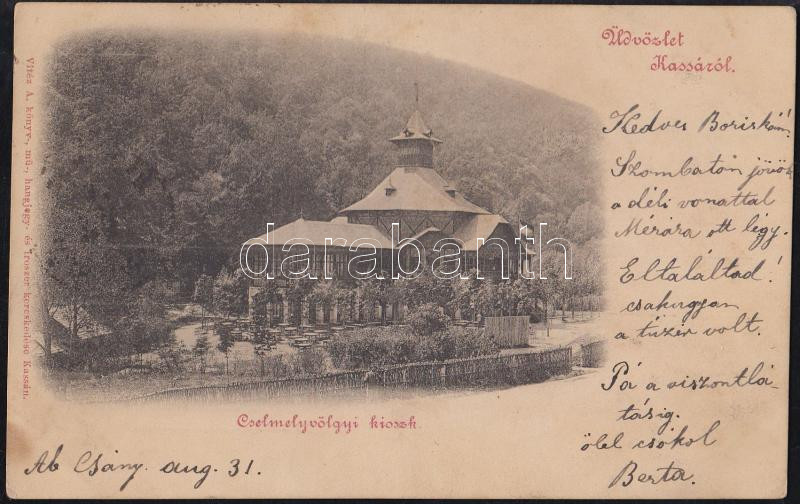 Üdvözlet
Kassáról.
Kedves Boriskám!
Szombatón jövök
a déli vonattal
Mérára ott légy.
Eltaláltad!
csakugyan
a tüzér volt.
Pá a viszontlá-
tásig.
ölel csókol
Berta.
darabanth
Cselmelyvölgyi kioszk.
Ab Csány. aug. 31.
Vitéz A. könyv-, mű-, hangjegy- és iroszer kereskedése Kassán.